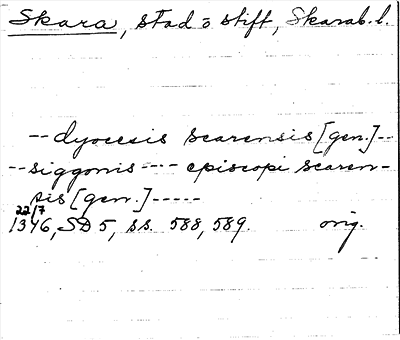 Skara, stad o stift, Skarab. l.
-- dyocesis scarensis [gen.] --
-- siggonis ---- episcopi scaren-
sis [gen.] -----
22/7
1346, SD 5, ss. 588, 589. orig.